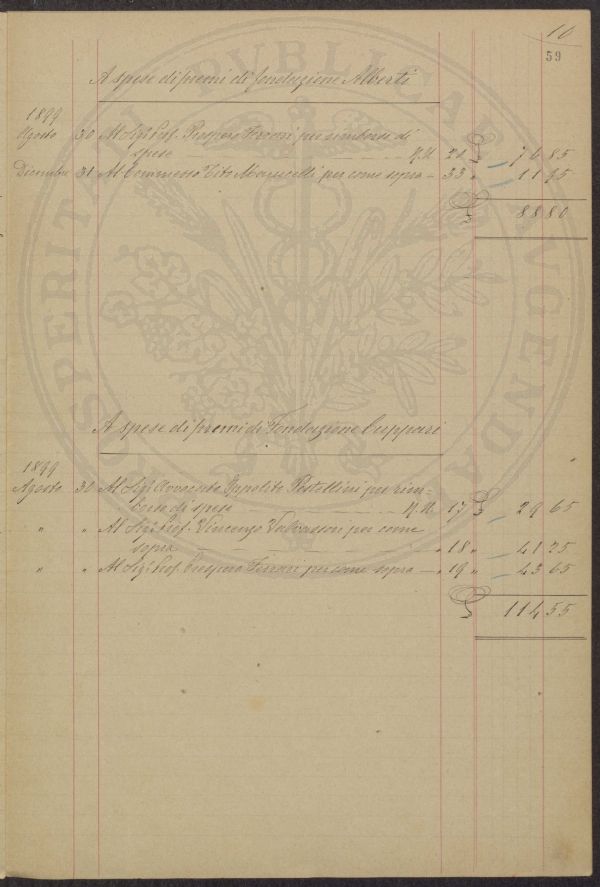 10
59
A spese di premi di fondazione Alberti
1899
Agosto 30 Al Sig. Prof. Prospero Ferrari per rimborso di
spese N.N. 22 £ 76 85
Dicembre 31 Al Commesso Tito Marucelli per come sopra - 33 " 11 95
£ 88 80
A spese di premi di Fondazione Cuppari
1899
Agosto 30 Al Sig. Avvocato Ippolito Pestellini per rim-
borso di spese N.N. 17 £ 29 65
" " Al Sig. Prof. Vincenzo Valvassori per come
sopra " 18 " 41 25
" " Al Sig. Prof. Prospero Ferrari per come sopra - " 19 " 43 65
£ 114 55
PROSPERITATI PUBLICAE AUGENDAE